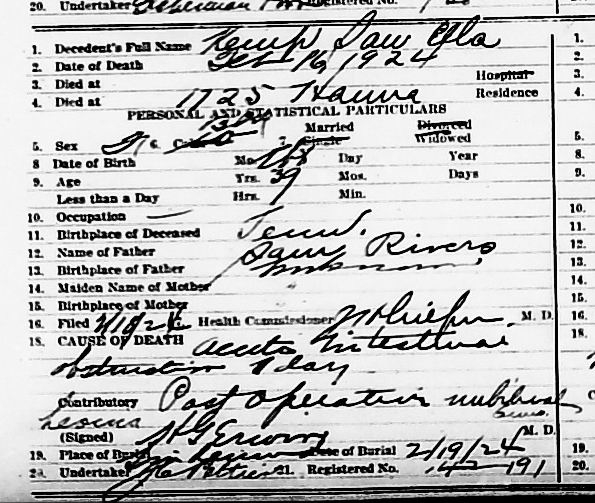 20. Undertaker Registered No.
1. Decedent's Full Name Kemp, Ola
2. Date of Death Feb 16, 1924
3. Died at Hospital
4. Died at 1725 Hanna Residence
PERSONAL AND STATISTICAL PARTICULARS
5. Sex 7. Married Single Divorced Widowed
8 Date of Birth Mo. Day Year
9. Age Yrs. 39 Mos. Days
Less than a Day Hrs. Min.
10. Occupation —
11. Birthplace of Deceased Tenn.
12. Name of Father Sam Rivers
13. Birthplace of Father unknown
14. Maiden Name of Mother
15. Birthplace of Mother
16. Filed 2/18/24 Health Commissioner M. D.
18. CAUSE OF DEATH Acute Intestinal
obstruction 1 day
Contributory Post Operative
(Signed) M. D.
19. Place of Burial Date of Burial 2/19/24
20. Undertaker 21. Registered No. 191